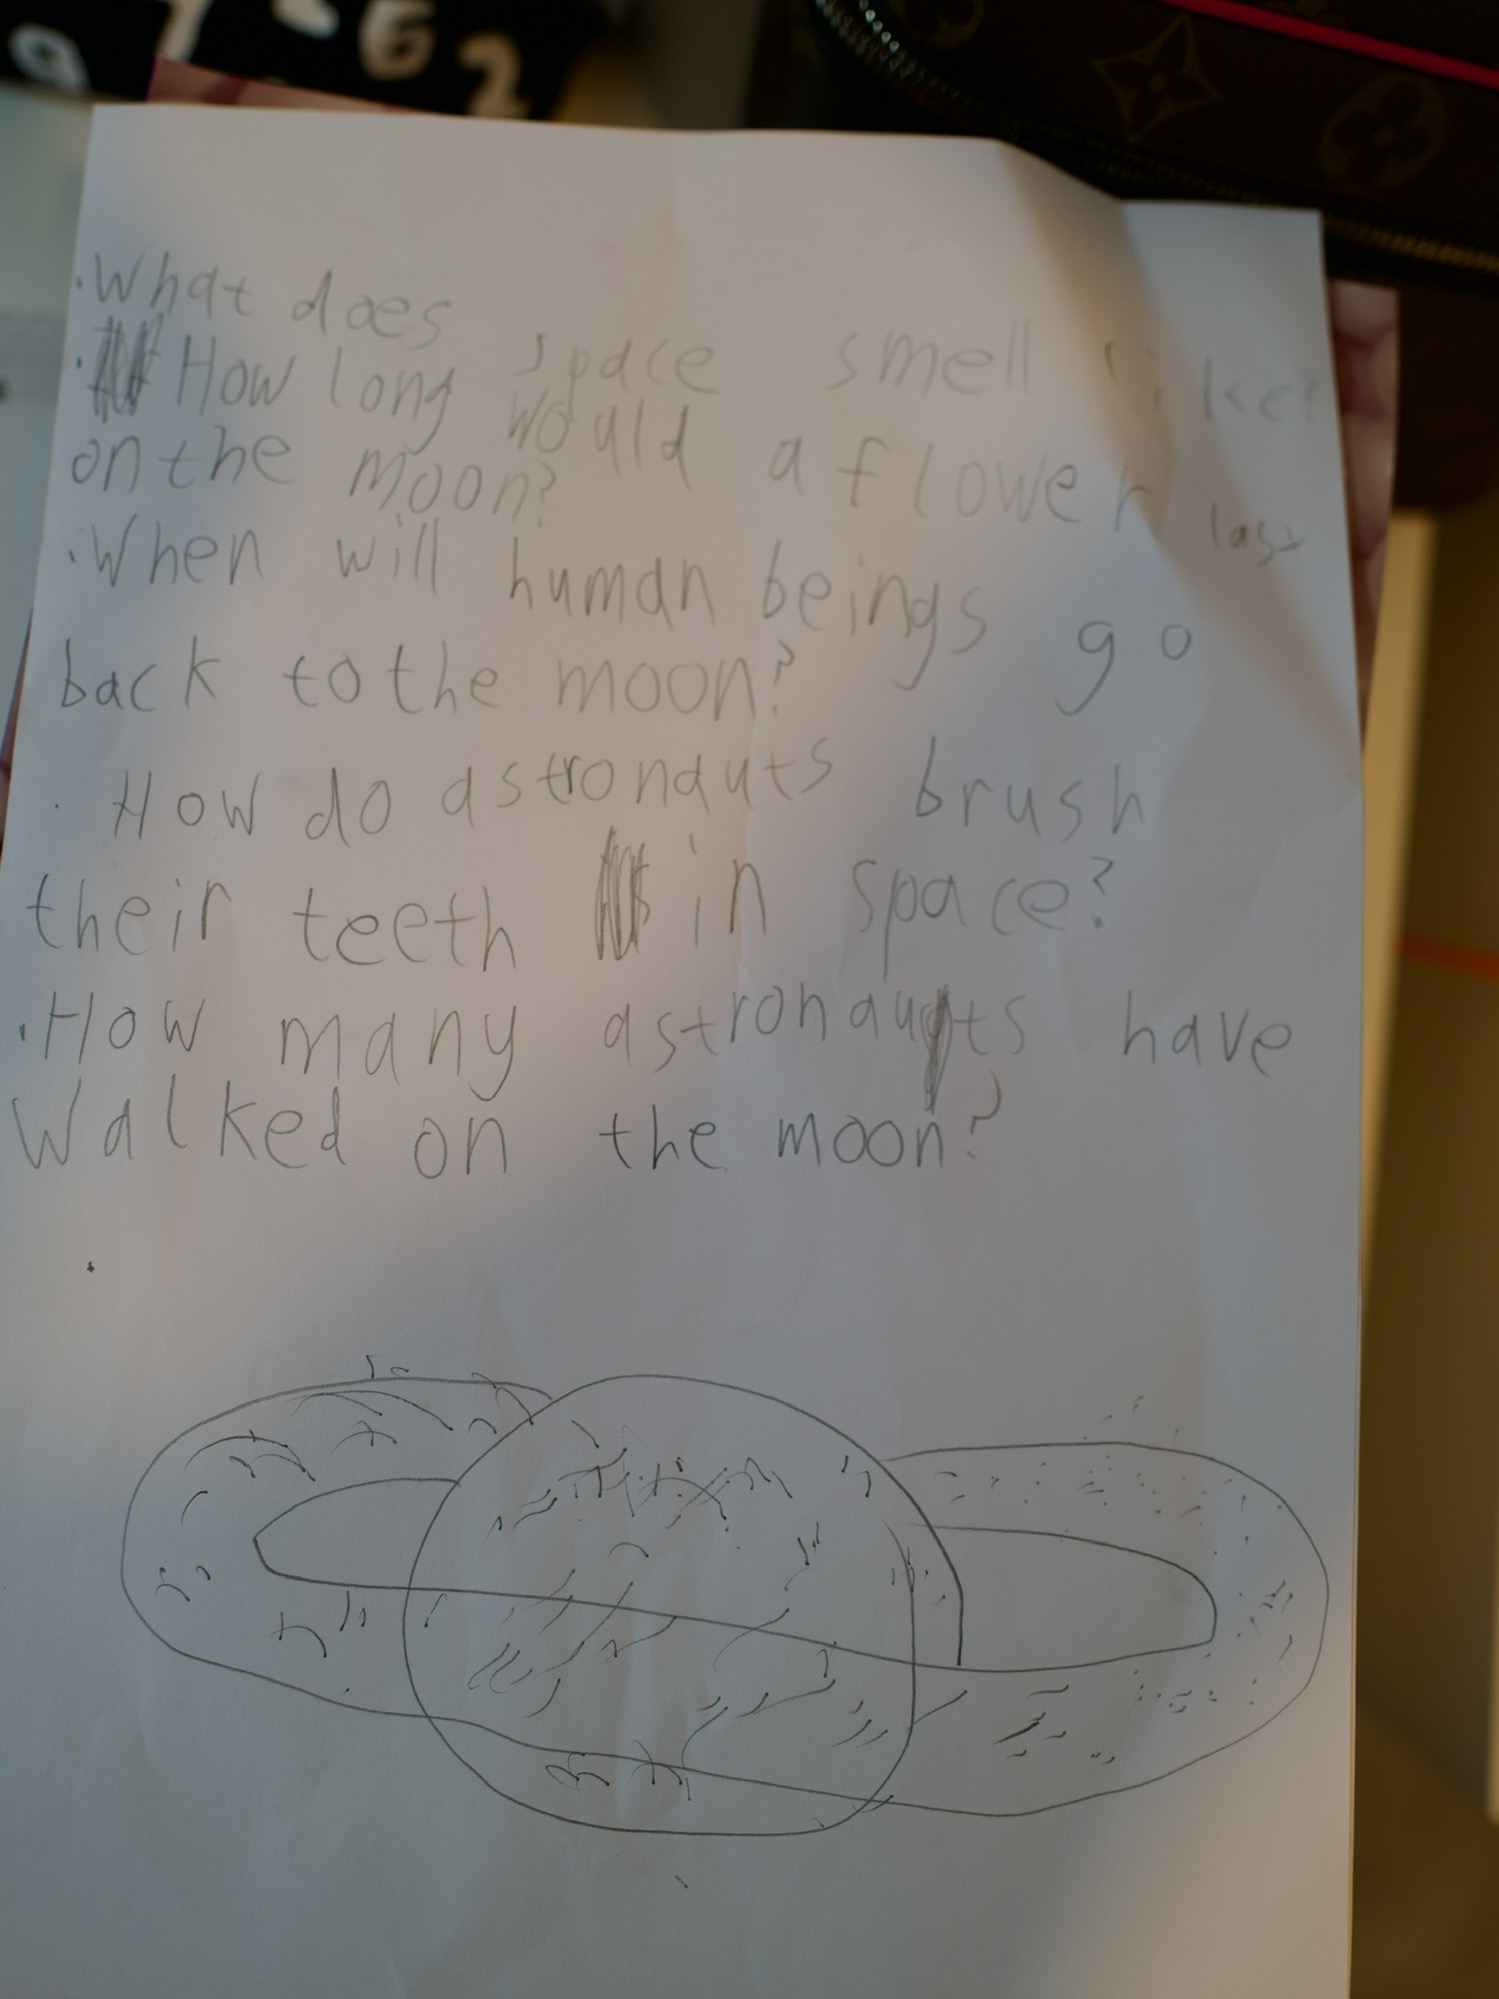 9 7 6 2
· What does space smell like?
· How long would a flower last
on the moon?
· When will human beings go
back to the moon?
· How do astronauts brush
their teeth in space?
· How many astronauts have
walked on the moon?